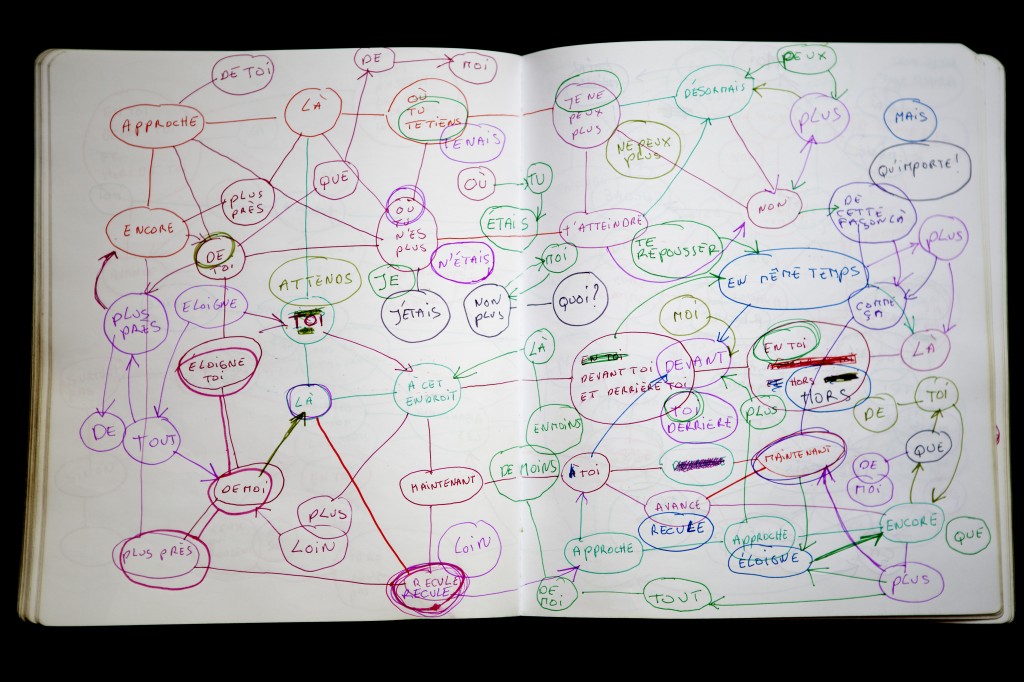 DE
MOI
DE TOI
APPROCHE
LÀ
OÙ
TU
TE TIENS
TENAIS
QUE
PLUS
PRÈS
OÙ
TU
N'ES
PLUS
OÙ
TU
ETAIS
ENCORE
DE
TOI
N'ÉTAIS
MOI
ATTENDS
JE
J'ÉTAIS
NON
PLUS
QUOI?
PLUS
PRÈS
ELOIGNE
TOI
ÉLOIGNE
TOI
LÀ
À CET
ENDROIT
LÀ
DE
TOUT
EN MOINS
DE MOINS
DE MOI
MAINTENANT
PLUS
LOIN
LOIN
PLUS PRÈS
RECULE
RECULE
DE
MOI
JE NE
PEUX
PLUS
DÉSORMAIS
PEUX
PLUS
MAIS
NE PEUX
PLUS
QU'IMPORTE!
NON
DE
CETTE
FAÇON
T'ATTEINDRE
TE
REPOUSSER
PLUS
EN MÊME TEMPS
COMME
ÇA
MOI
EN TOI
DEVANT TOI
ET DERRIÈRE TOI
DEVANT
EN TOI
HORS
HORS
LÀ
TOI
DERRIÈRE
PLUS
DE
TOI
QUE
À TOI
MAINTENANT
DE
MOI
AVANCE
RECULE
APPROCHE
APPROCHE
ÉLOIGNE
ENCORE
QUE
TOUT
PLUS